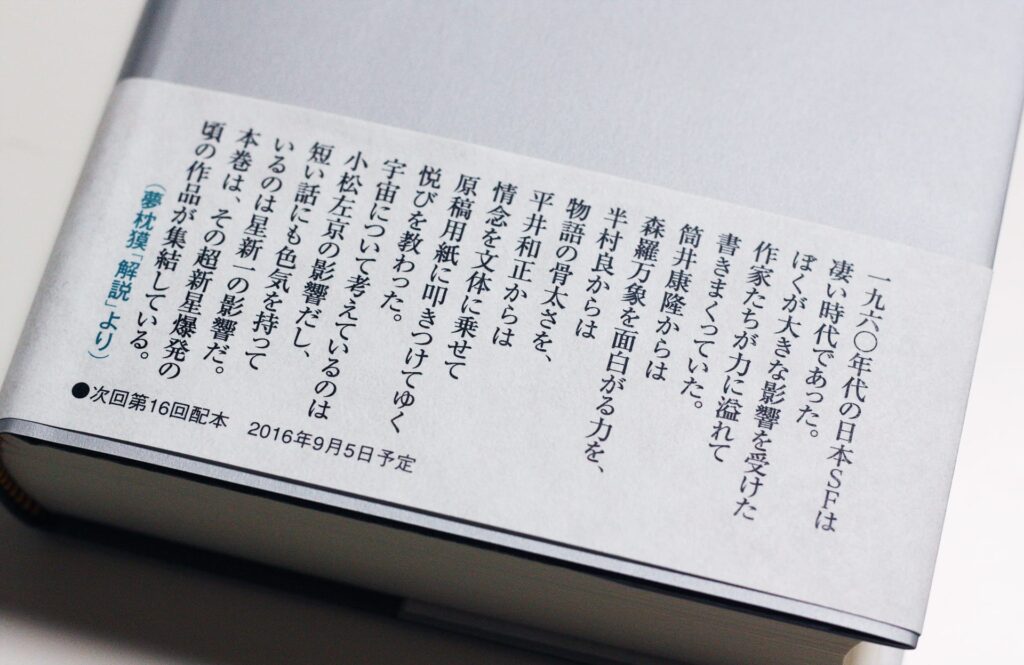 一九六〇年代の日本SFは
凄い時代であった。
ぼくが大きな影響を受けた
作家たちが力に溢れて
書きまくっていた。
筒井康隆からは
森羅万象を面白がる力を、
半村良からは
物語の骨太さを、
平井和正からは
情念を文体に乗せて
原稿用紙に叩きつけてゆく
悦びを教わった。
宇宙について考えているのは
小松左京の影響だし、
短い話にも色気を持って
いるのは星新一の影響だ。
本巻は、その超新星爆発の
頃の作品が集結している。
(夢枕獏「解説」より)
●次回第16回配本 2016年9月5日予定